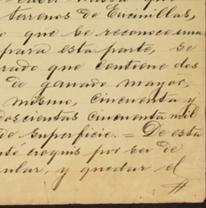 terrenos de Encinillas,
que se reconoce una
para esta parte, se
rado que contiene dos
de ganado mayor,
mismo, cincuenta y
doscientas cincuenta mil
de superficie. = De esta
croquis por ser de
ular, y quedar el